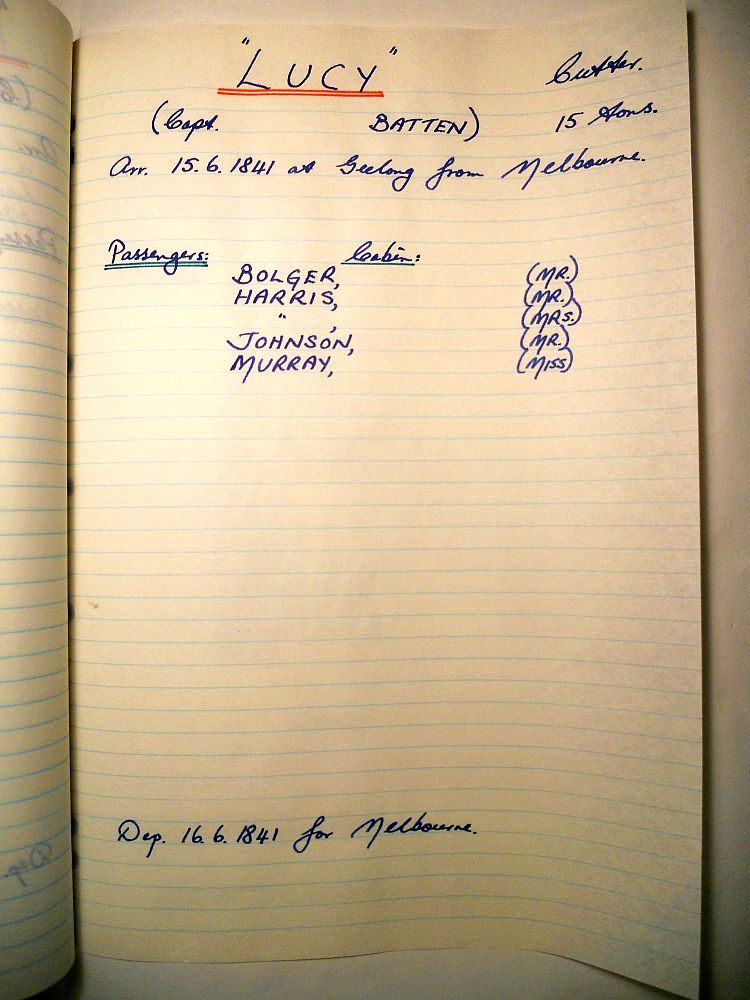 "LUCY" Cutter.
(Capt. BATTEN) 15 tons.
Arr. 15.6.1841 at Geelong from Melbourne.
Passengers: Cabin:
BOLGER, (MR.)
HARRIS, (MR.)
" , (MRS.)
JOHNSON, (MR.)
MURRAY, (MISS)
Dep. 16.6.1841 for Melbourne.